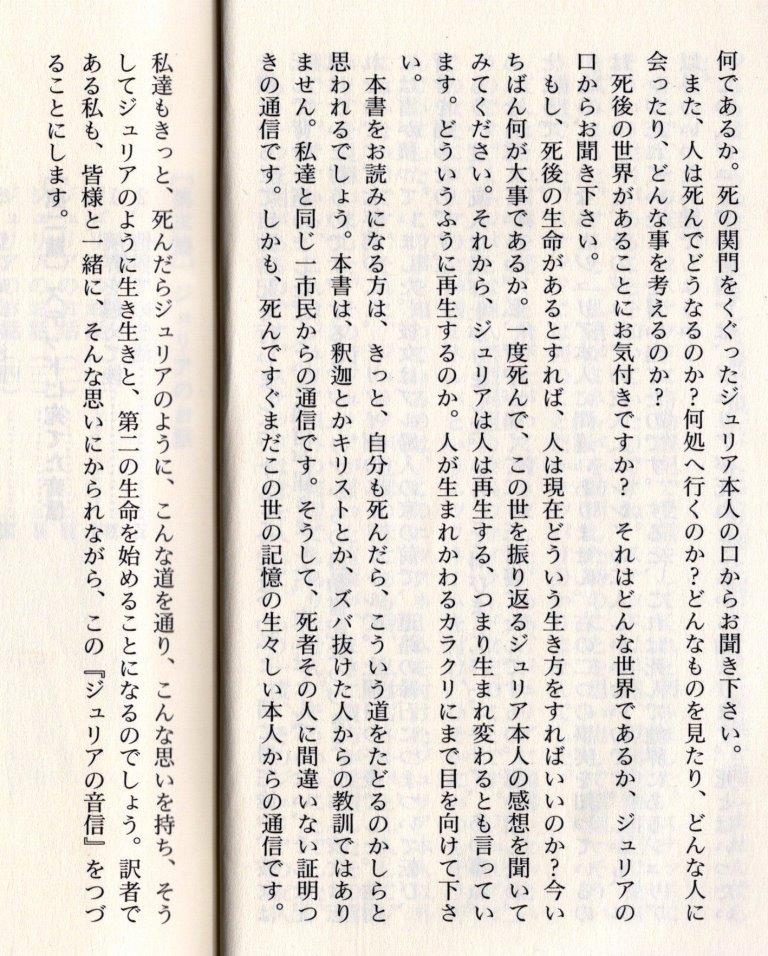 何であるか。死の関門をくぐったジュリア本人の口からお聞き下さい。
また、人は死んでどうなるのか?何処へ行くのか?どんなものを見たり、どんな人に
会ったり、どんな事を考えるのか?
死後の世界があることにお気付きですか? それはどんな世界であるか、ジュリアの
口からお聞き下さい。
もし、死後の生命があるとすれば、人は現在どういう生き方をすればいいのか?今い
ちばん何が大事であるか。一度死んで、この世を振り返るジュリア本人の感想を聞いて
みてください。それから、ジュリアは人は再生する、つまり生まれ変わるとも言ってい
ます。どういうふうに再生するのか。人が生まれかわるカラクリにまで目を向けて下さ
い。
本書をお読みになる方は、きっと、自分も死んだら、こういう道をたどるのかしらと
思われるでしょう。本書は、釈迦とかキリストとか、ズバ抜けた人からの教訓ではあり
ません。私達と同じ一市民からの通信です。そうして、死者その人に間違いない証明つ
きの通信です。しかも、死んですぐまだこの世の記憶の生々しい本人からの通信です。
私達もきっと、死んだらジュリアのように、こんな道を通り、こんな思いを持ち、そう
してジュリアのように生き生きと、第二の生命を始めることになるのでしょう。訳者で
ある私も、皆様と一緒に、そんな思いにかられながら、この『ジュリアの音信』をつづ
ることにします。